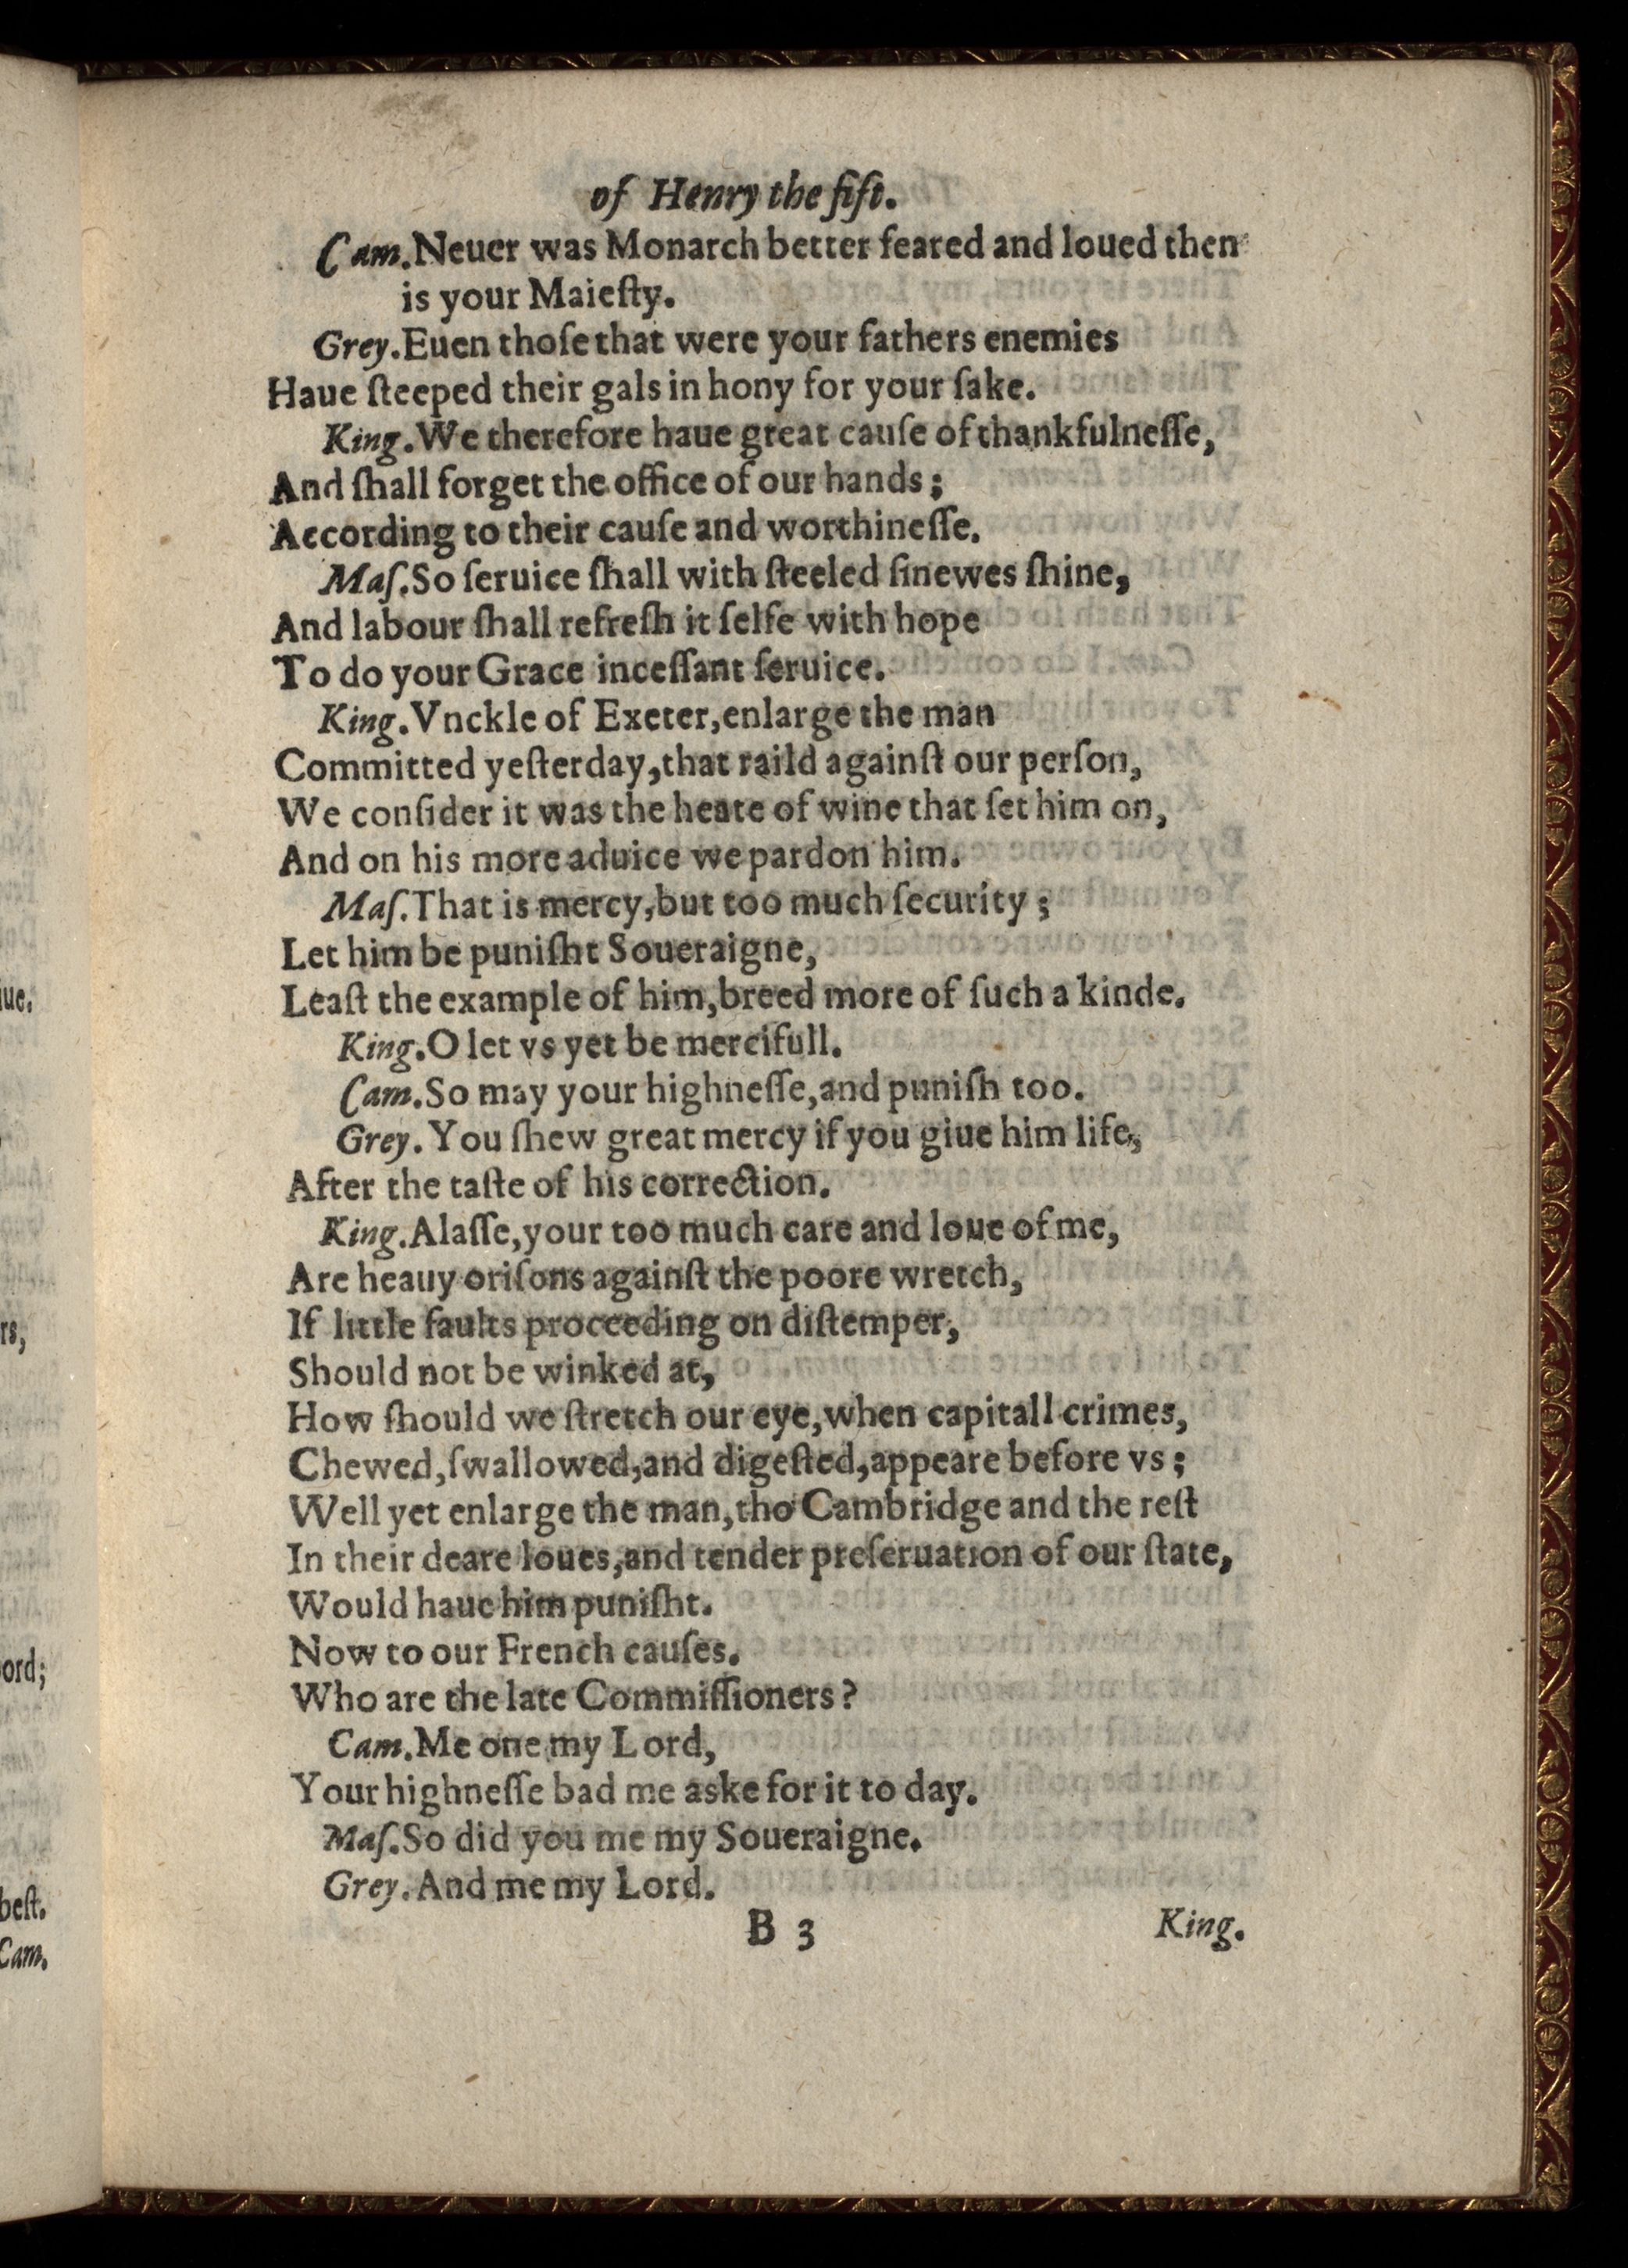 of Henry the fift.
Cam. Neuer was Monarch better feared and loued then
is your Maieſty.
Grey. Euen thoſe that were your fathers enemies
Haue ſteeped their gals in hony for your ſake.
King. We therefore haue great cauſe of thankfulneſſe,
And ſhall forget the office of our hands;
According to their cauſe and worthineſſe.
Maſ. So ſeruice ſhall with ſteeled ſinewes ſhine,
And labour ſhall refreſh it ſelfe with hope
To do your Grace inceſſant ſeruice.
King. Vnckle of Exeter, enlarge the man
Committed yeſterday, that raild againſt our perſon,
We conſider it was the heate of wine that ſet him on,
And on his more aduice we pardon him.
Maſ. That is mercy, but too much ſecurity;
Let him be puniſht Soueraigne,
Leaſt the example of him, breed more of ſuch a kinde.
King. O let vs yet be mercifull.
Cam. So may your highneſſe, and puniſh too.
Grey. You ſhew great mercy if you giue him life,
After the taſte of his correction.
King. Alaſſe, your too much care and loue of me,
Are heauy oriſons againſt the poore wretch,
If little faults proceeding on diſtemper,
Should not be winked at,
How ſhould we ſtretch our eye, when capitall crimes,
Chewed, ſwallowed, and digeſted, appeare before vs;
Well yet enlarge the man, tho Cambridge and the reſt
In their deare loues, and tender preſeruation of our ſtate,
Would haue him puniſht.
Now to our French cauſes.
Who are the late Commiſſioners?
Cam. Me one my Lord,
Your highneſſe bad me aske for it to day.
Maſ. So did you me my Soueraigne.
Grey. And me my Lord.
B 3 King.
ue,
rs,
ord;
beſt.
Cam.